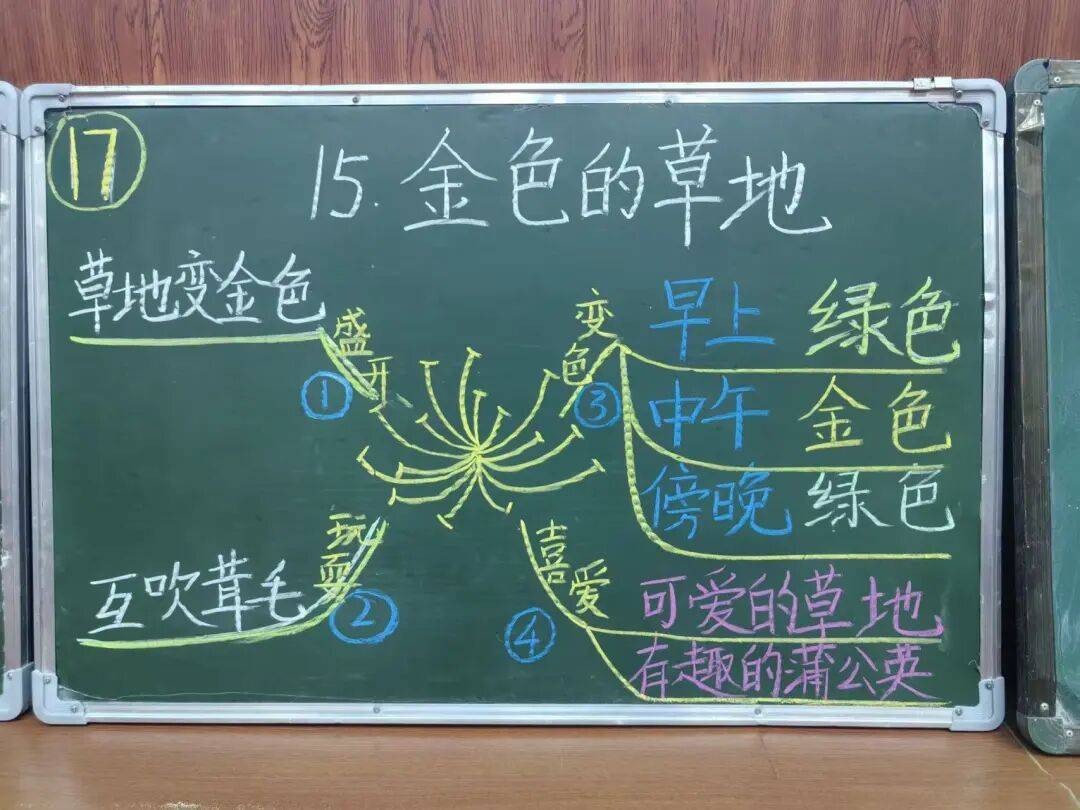 17
15.金色的草地
草地变金色
盛开
①
互吹茸毛
玩耍
②
变色
③
早上 绿色
中午 金色
傍晚 绿色
喜爱
④
可爱的草地
有趣的蒲公英